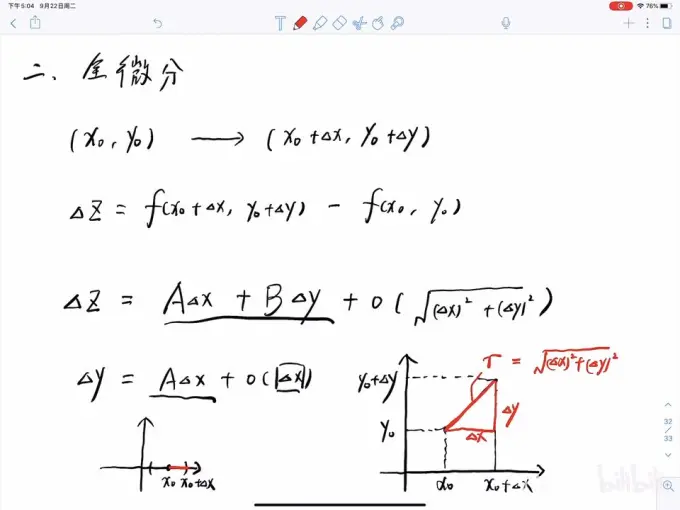 下午5:04 9月22日周二
76%
二、全微分
(x₀, y₀) ⟶ (x₀+Δx, y₀+Δy)
ΔZ = f(x₀+Δx, y₀+Δy) - f(x₀, y₀)
ΔZ = AΔx + BΔy + o(√((Δx)² + (Δy)²))
Δy = AΔx + o(|Δx|)
r = √((Δx)²+(Δy)²)
y₀+Δy
Δy
y₀
Δx
x₀ x₀+Δx
x₀ x₀+Δx
32
/
33
bilibili